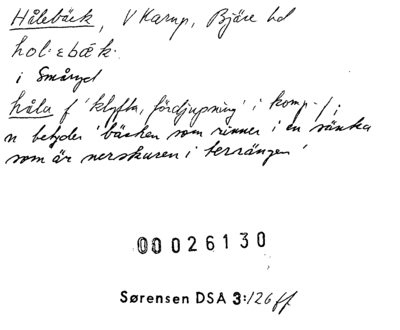 Hålebäck, V Karup, Bjäre hd
hol·εbæ̂k·
i Småryd
håla f 'klyfta, fördjupning' i komp. /;
n betyder 'bäcken som rinner i en sänka
som är nerskuren i terrängen'
00026130
Sørensen DSA 3:126 ff